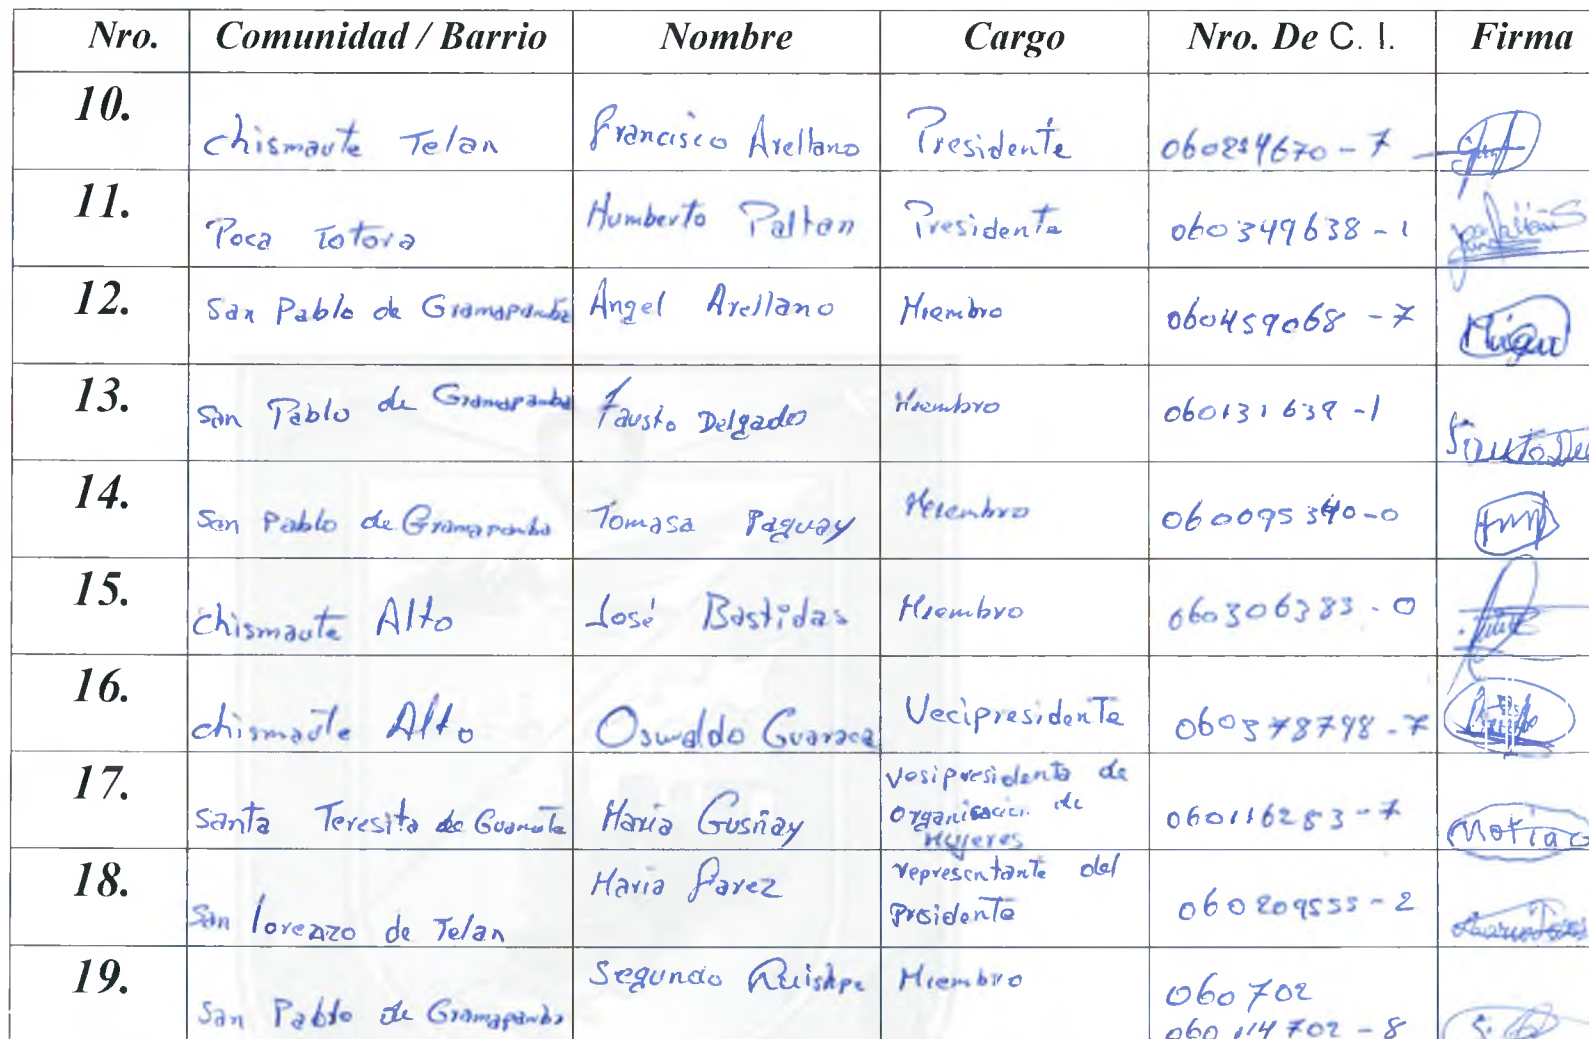 Nro. Comunidad / Barrio Nombre Cargo Nro. De C. I. Firma
10. chismaute Telan Francisco Arellano Presidente 060284670-7
11. Poca Totora Humberto Paltan Presidente 060349638-1
12. San Pablo de Gramapamba Angel Arellano Miembro 060459068-7
13. San Pablo de Gramapamba Fausto Delgado Miembro 060131639-1
14. San Pablo de Gramapamba Tomasa Paguay Miembro 060095340-0
15. chismaute Alto José Bastidas Miembro 060306383-0
16. chismaute Alto Oswaldo Guaraca Vecipresidente 060378798-7
17. Santa Teresita de Guamote Maria Gusñay vosipresidenta de
organisacion de
Mujeres 060116283-7
18. San lorenzo de Telan Maria representante del
Presidente 060209555-2
19. San Pablo de Gramapamba Segundo Quishpe Miembro 060702
060114702-8